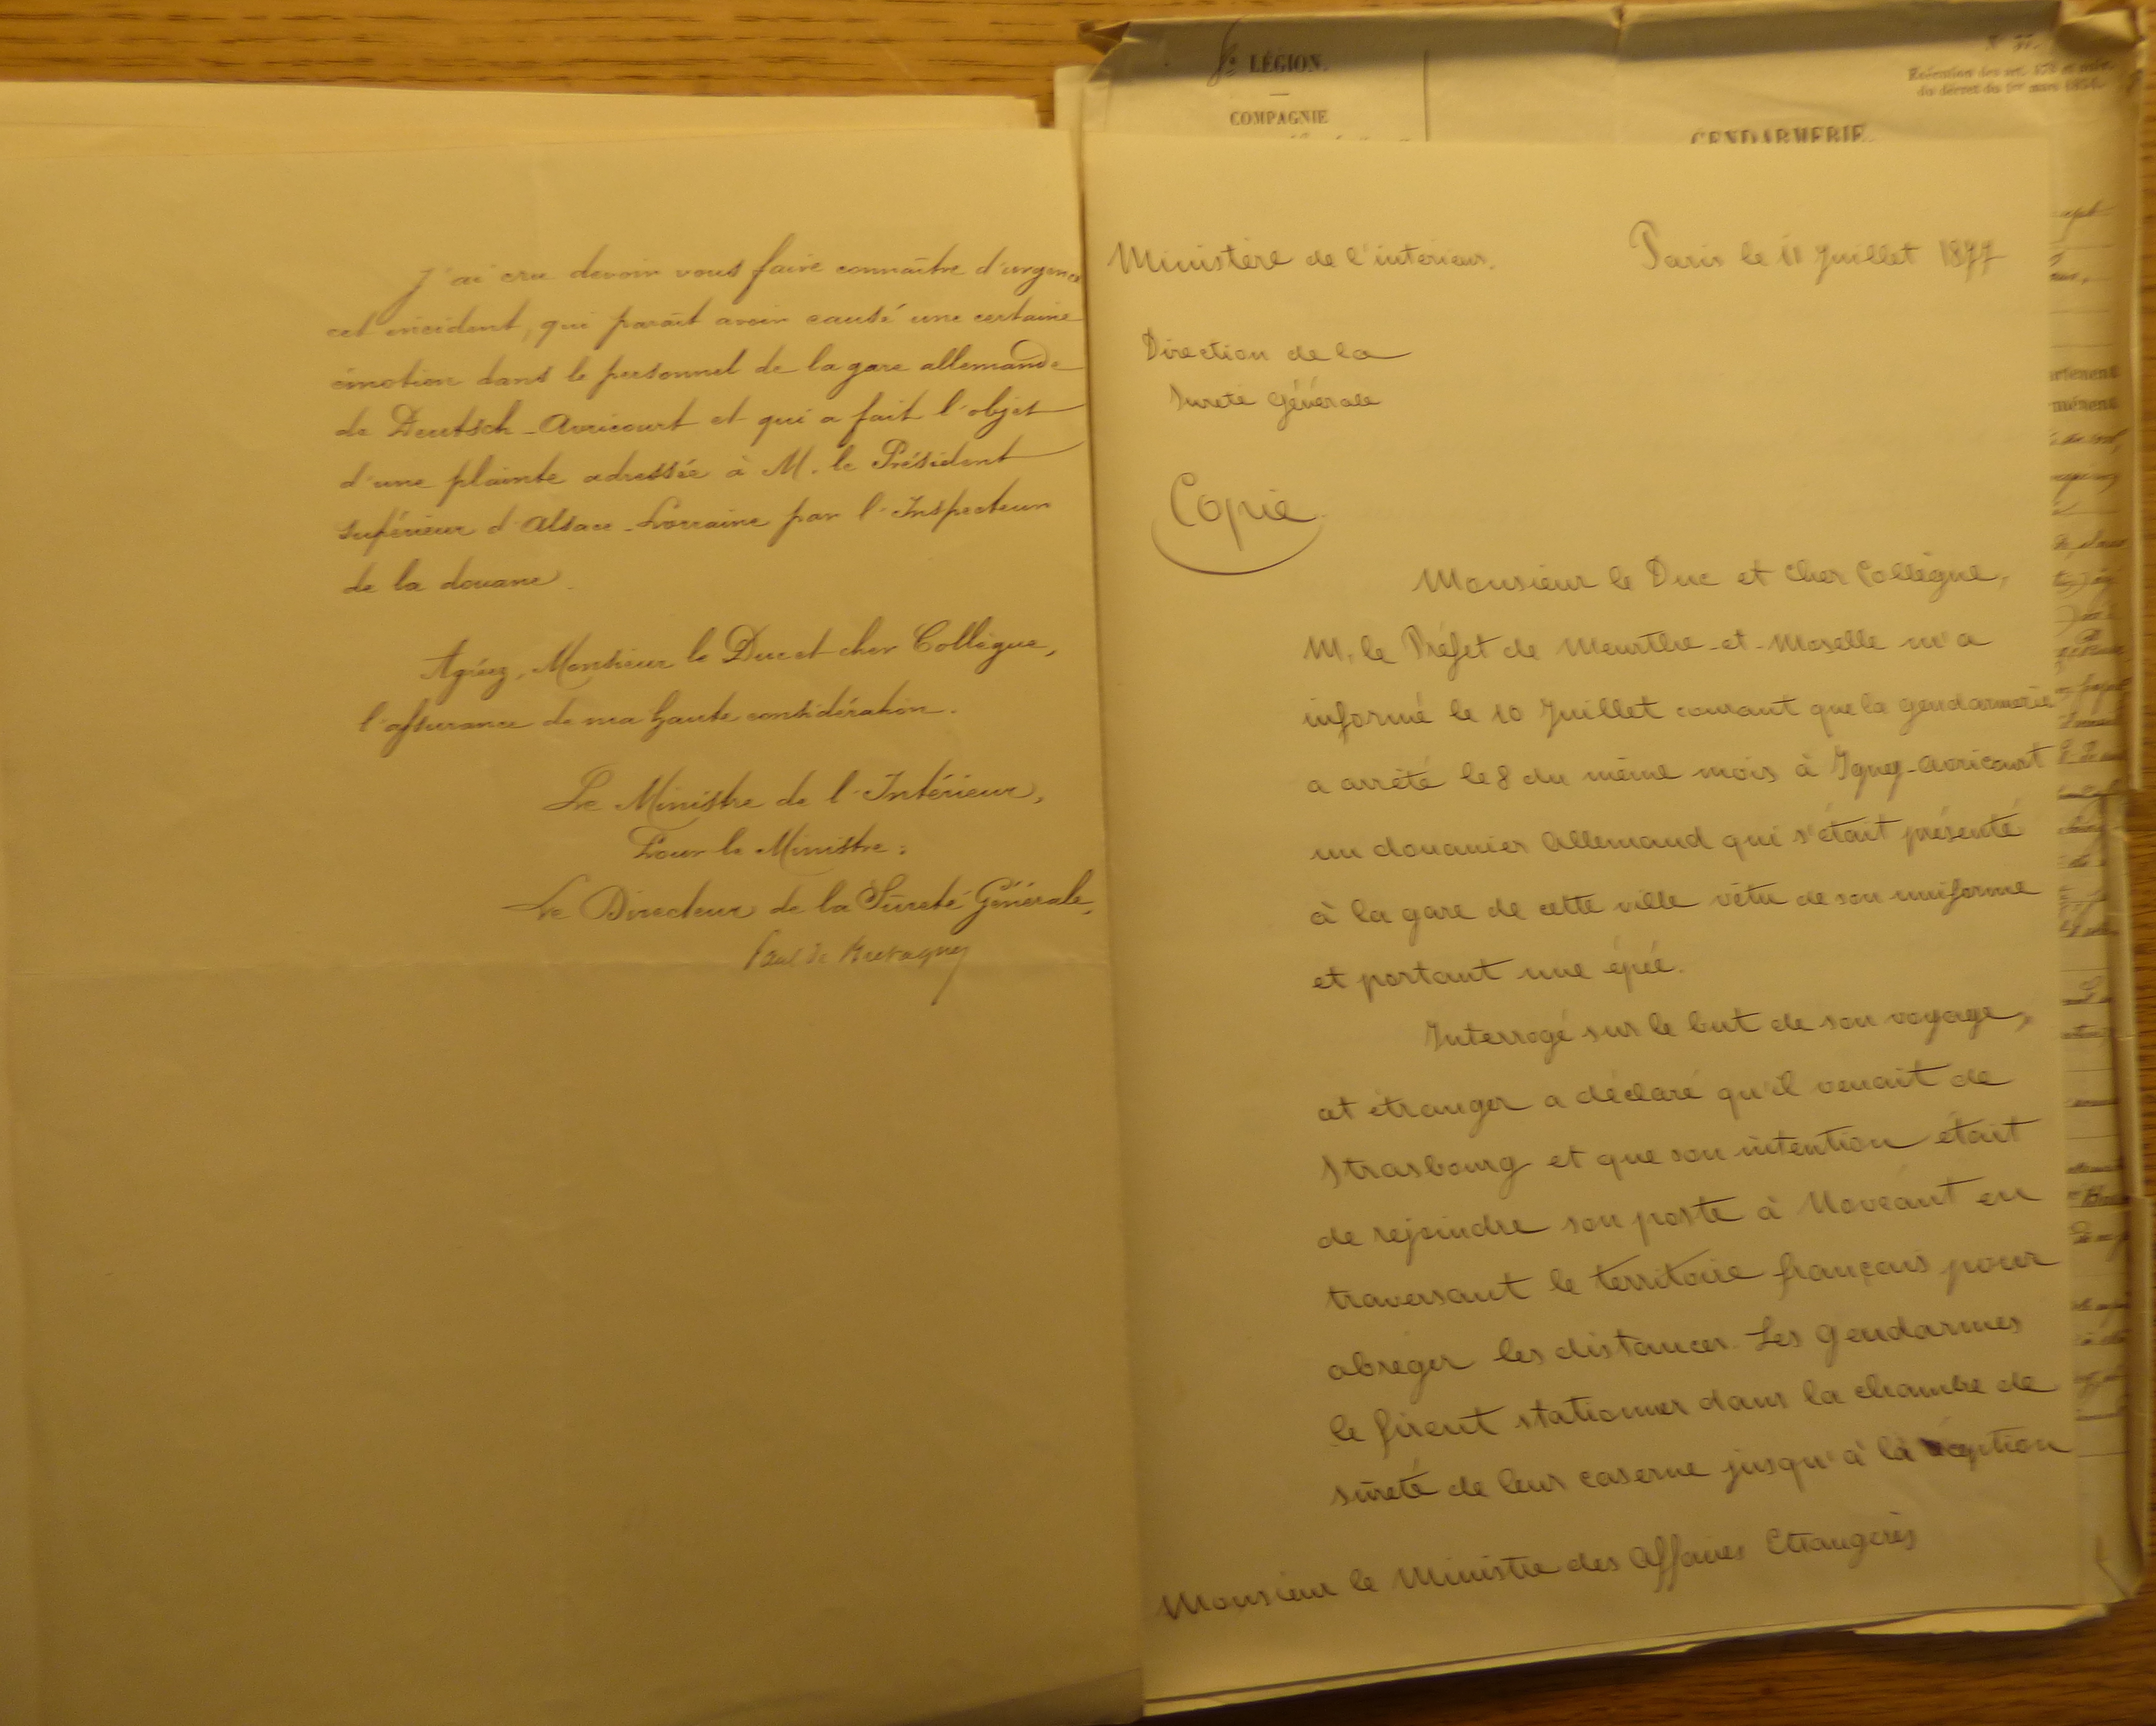 J'ai cru devoir vous faire connaître d'urgence
cet incident, qui paraît avoir causé une certaine
émotion dans le personnel de la gare allemande
de Deutsch-Avricourt et qui a fait l'objet
d'une plainte adressée à M. le Président
supérieur d'Alsace-Lorraine par l'Inspecteur
de la douane.
Agréez, Monsieur le Duc et cher Collègue,
l'assurance de ma haute considération.
Le Ministre de l'Intérieur,
Pour le Ministre:
Le Directeur de la Sûreté Générale,
de
LÉGION.
COMPAGNIE
GENDARMERIE.
du décret du 1er mars 1854.
Ministère de l'intérieur.
Paris le 11 Juillet 1877
Direction de la
Sureté Générale
Copie
Monsieur le Duc et Cher Collègue,
M. le Préfet de Meurthe-et-Moselle m'a
informé le 10 Juillet courant que la gendarmerie
a arrêté le 8 du même mois à Igney-Avricourt
un douanier Allemand qui s'était présenté
à la gare de cette ville vêtu de son uniforme
et portant une épée.
Interrogé sur le but de son voyage,
cet étranger a déclaré qu'il venait de
Strasbourg et que son intention était
de rejoindre son poste à Novéant en
traversant le territoire français pour
abréger les distances. Les Gendarmes
le firent stationner dans la chambre de
sûreté de leur caserne jusqu'à la réception
Monsieur le Ministre des Affaires Etrangères